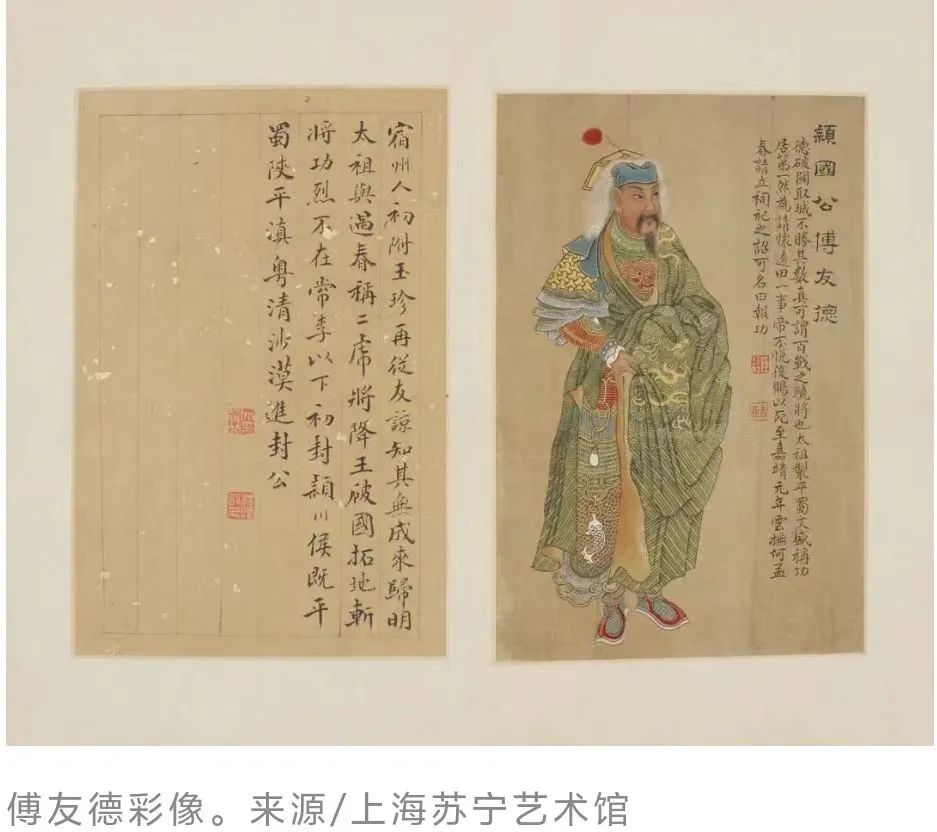 穎國公傅友德
德破關取城不勝其數真可謂百戰之驍將也太祖製平蜀文盛稱功
居第一然為請懷遠田一事帝不悅後賜以死至嘉靖元年雲撫何孟
春請立祠祀之詔可名曰報功
宿州人初附玉珍再從友諒知其無成來歸明
太祖與遇春稱二虎將降王破國拓地斬
將功烈不在常李以下初封穎川侯既平
蜀陝平滇粵清沙漠進封公
傅友德彩像。来源/上海苏宁艺术馆